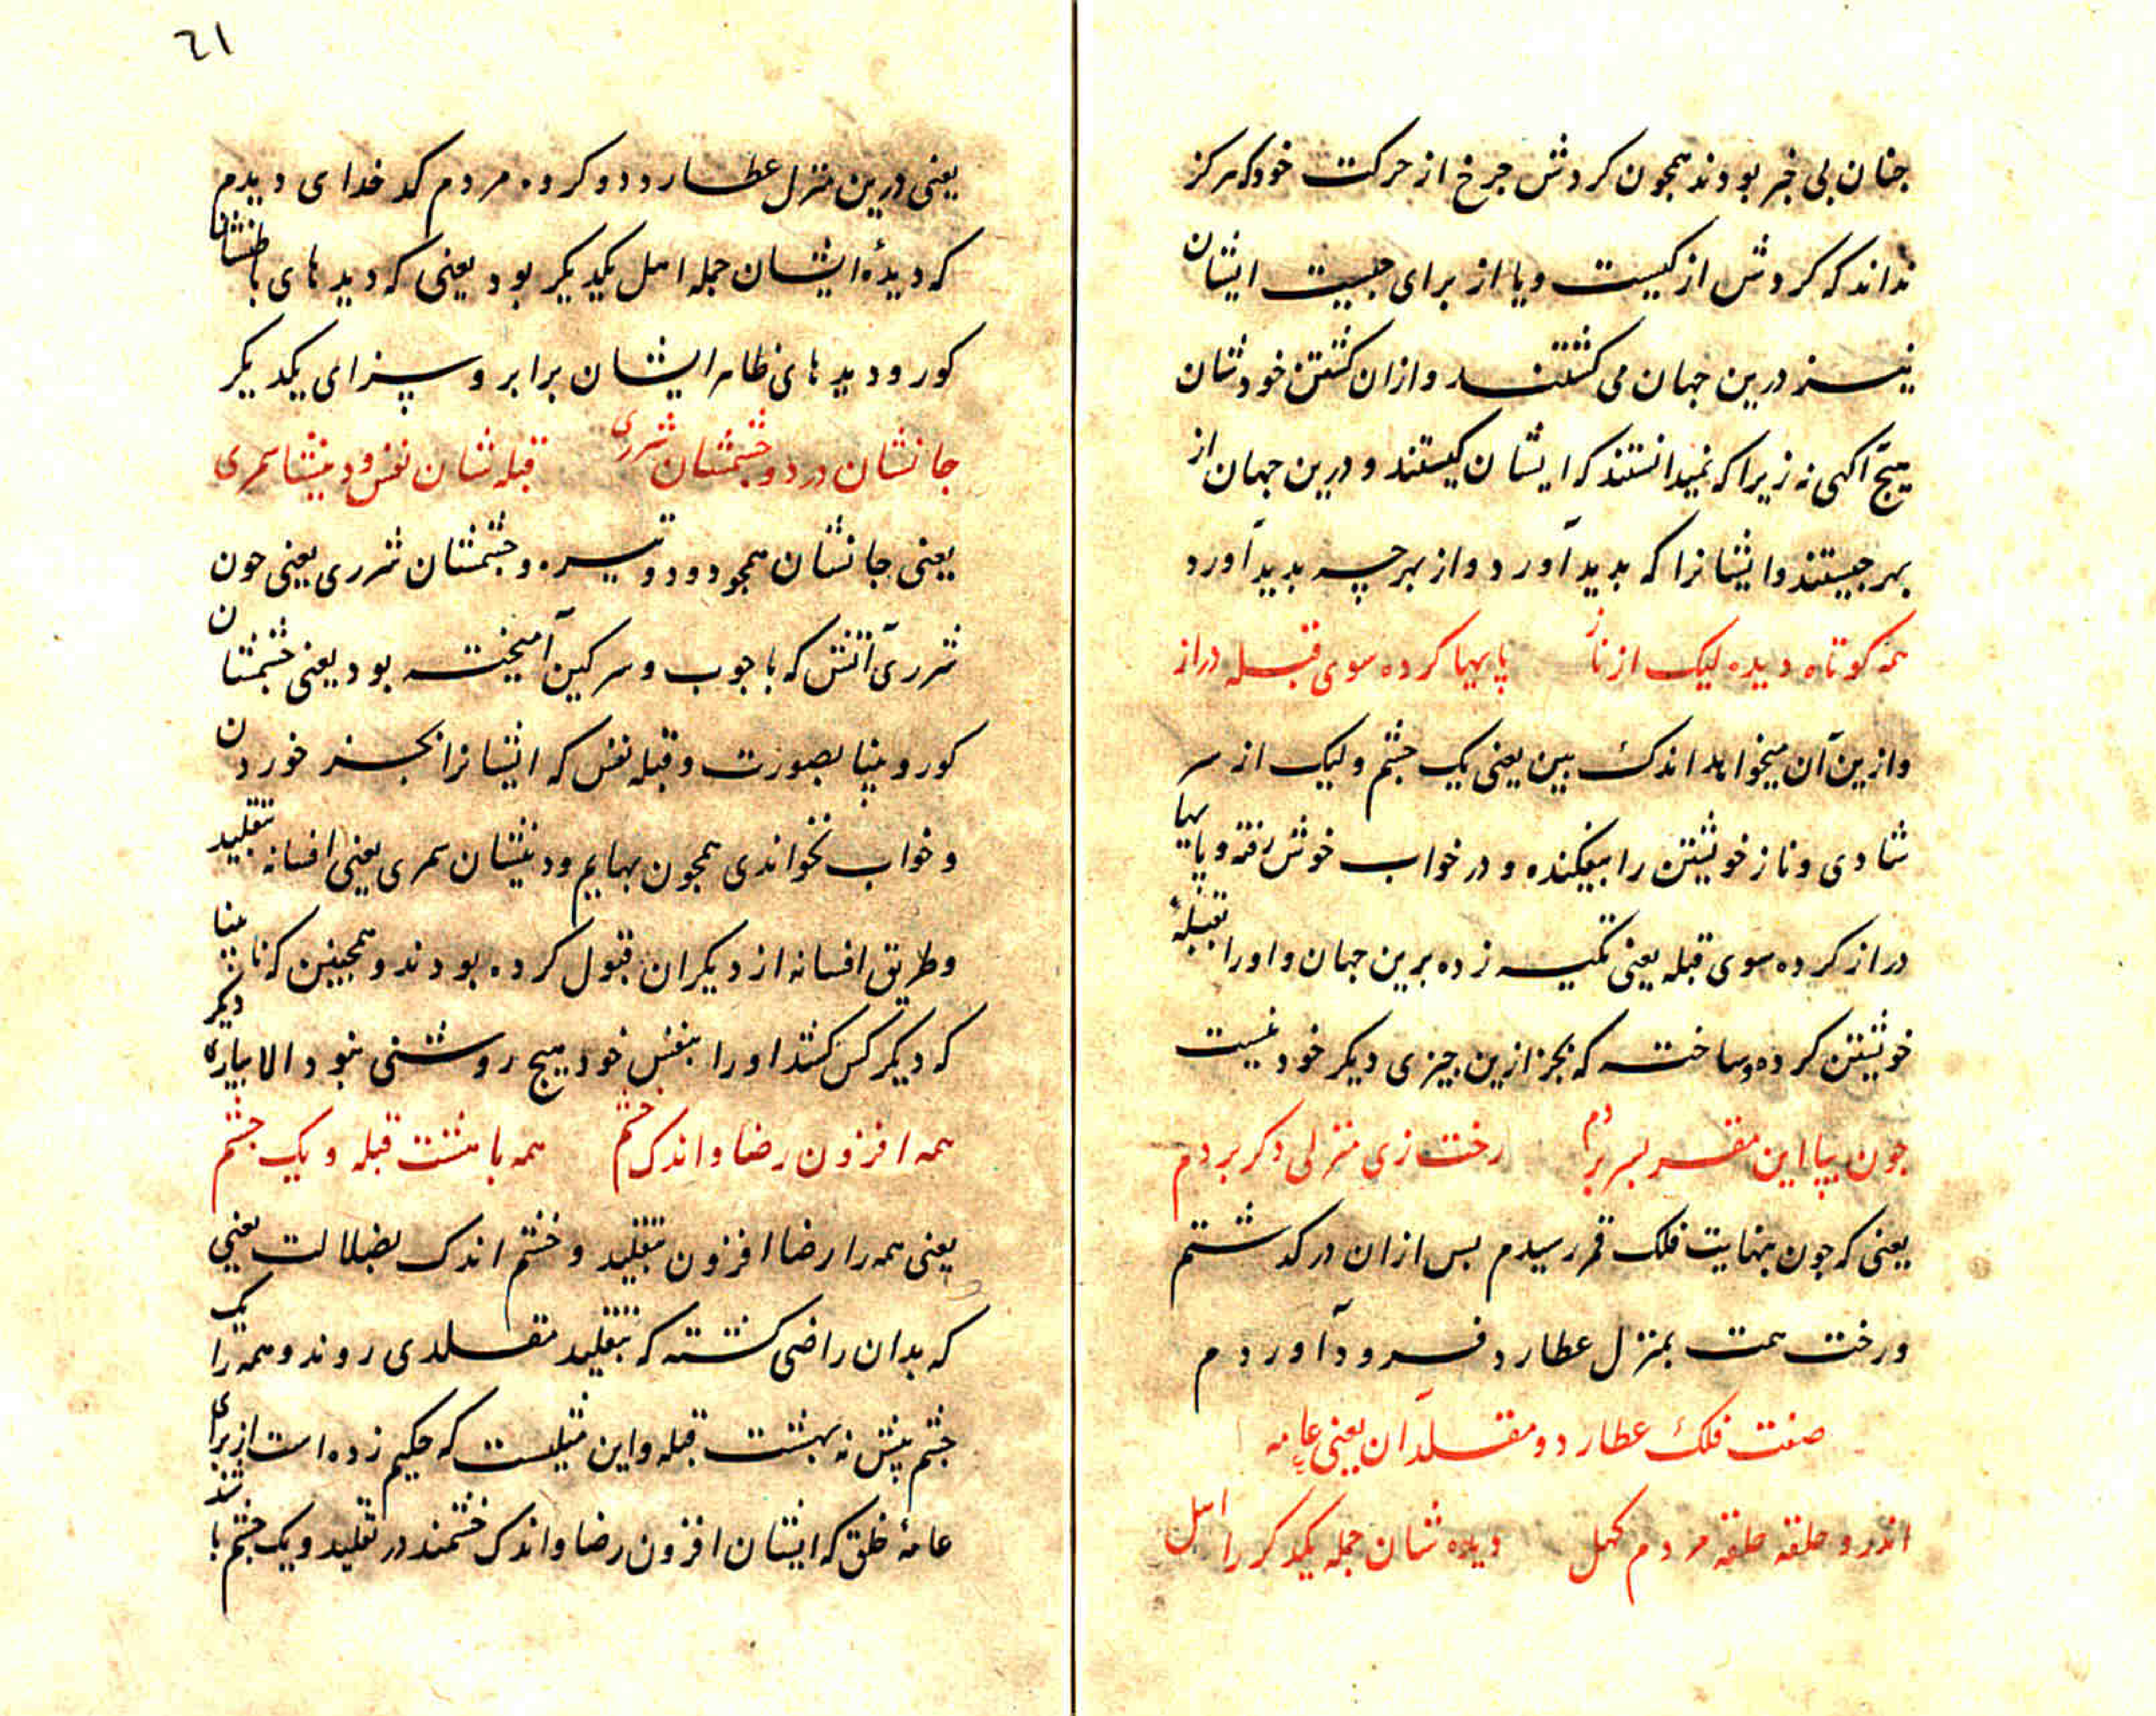 جنان بی خبر بودند همجون کردش جرخ از حرکت خود که هرکز
نداند که کردش از کیست و یا از برای جیست ایشان
نیز درین جهان می کشتند و ازان کشتن خودشان
هیچ آکهی نه زیرا که نمیدانستند که ایشان کیستند و درین جهان از
بهر جیستند و ایشانرا که بدید آورد و از بهر چه بدید آورد
همه کوتاه دیده لیک از ناز پایها کرده سوی قبله دراز
و ازین آن میخواهد اندک بین یعنی یک جشم و لیک از سر
شادی و ناز خویشتن را بیفکنده و در خواب خوش رفته و پایها
دراز کرده سوی قبله یعنی تکیه زده برین جهان و اورا بقبله
خویشتن کرده و ساخته که بجز ازین چیزی دیکر خود نیست
جون بپا این مقر بسر بردم رخت زی منزلی دکر بردم
یعنی که جون بنهایت فلک قمر رسیدم بس ازان در کذشتم
و رخت همت بمنزل عطارد فرود آوردم
صفت فلک عطارد و مقلدان یعنی عامه
اندرو حلقه حلقه مردم کهل دیده شان جمله یکدکر را اهل
٦١
یعنی درین منزل عطارد دو کروه مردم کدخدای دیدم
که دیدهٔ ایشان جمله اهل یکدیکر بود یعنی که دیدهای باطنشان
کور و دیدهای ظاهر ایشان برابر و سزای یکدیکر
جانشان درد و جشمشان شرری قبله شان نفس و دینشان سمری
یعنی جانشان همجو دود و تیره و جشمشان شرری یعنی جون
شرری آتش که با جوب و سرکین آمیخته بود یعنی جشمشان
کور و بینا بصورت و قبله نفس که ایشانرا بجز خوردن
و خواب نخواندی همجون بهایم و دینشان سمری یعنی افسانه بتقلید
و طریق افسانه از دیکران قبول کرده بودند و همجنین که نابینا
که دیکر کس کشد اورا بنفس خود هیج روشنی نبود الا بیاری دیکر
همه افزون رضا و اندک خشم همه با هشت قبله و یک جشم
یعنی همه را رضا افزون بتقلید و خشم اندک بضلالت یعنی
که بدان راضی کشته که بتقلید مقلدی روند و همه را یک
جشم پیش نه بهشت قبله و این مثلیست که حکیم زده است از برای
عامهٔ خلق که ایشان افزون رضا و اندک خشمند در تقلید و یک جشم باشند